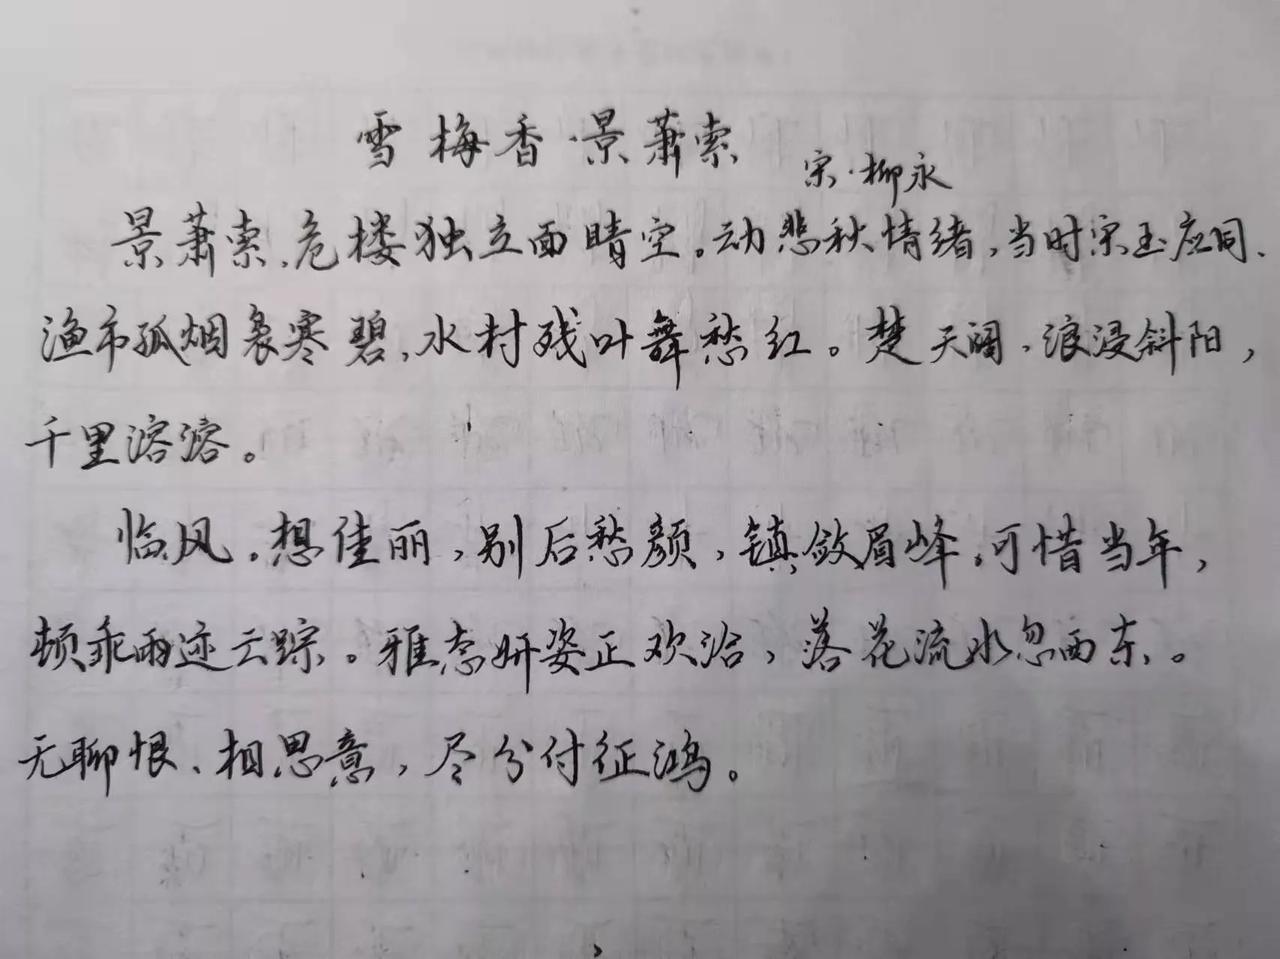 雪梅香·景萧索
宋·柳永
景萧索,危楼独立面晴空。动悲秋情绪,当时宋玉应同.
渔市孤烟袅寒碧,水村残叶舞愁红。楚天阔,浪浸斜阳,
千里溶溶。
临风。想佳丽,别后愁颜,镇敛眉峰。可惜当年,
顿乖雨迹云踪。雅态妍姿正欢洽,落花流水忽西东。
无聊恨、相思意,尽分付征鸿。